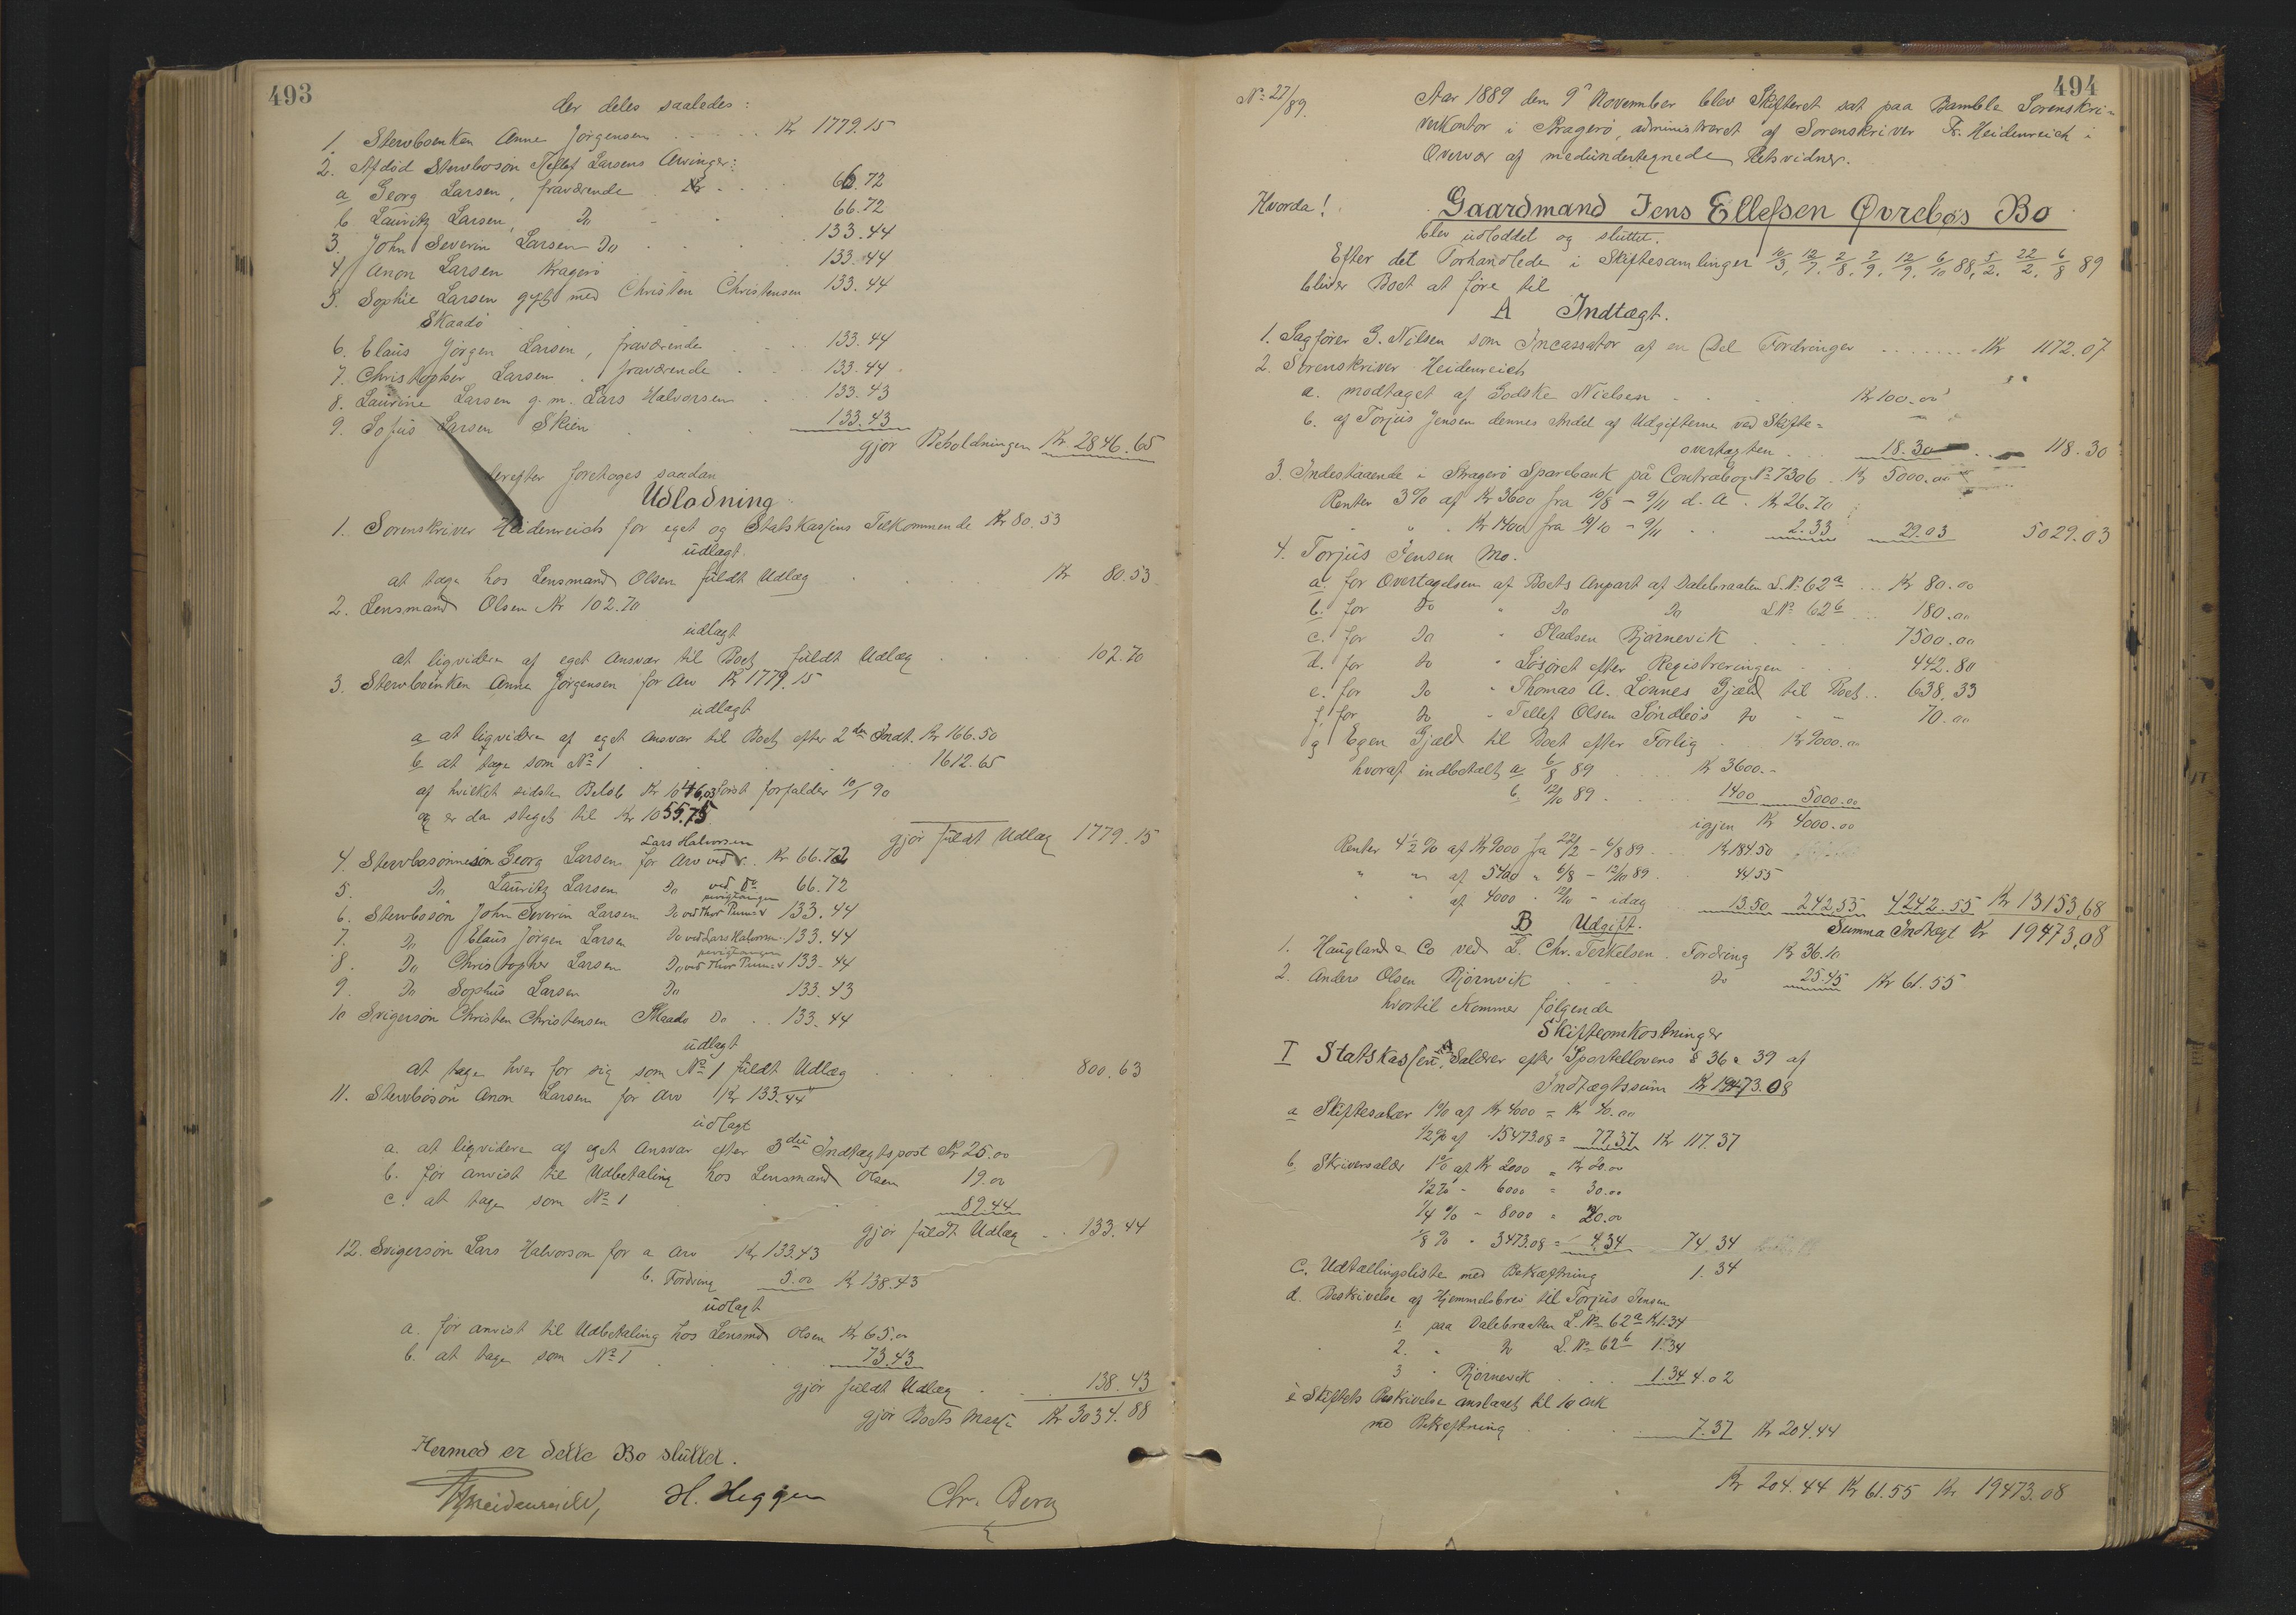 493
der deles saaledes:
1. Stervboenken Anne Jörgensen . . . . . Kr 1779.15
2. Afdød Stervbosön Tellef Larsens Arvinger:
a Georg Larsen, fraværende Kr . . . 66.72
b Lauritz Larsen, Do 66.72
3. John Severin Larsen Do . . . 133.44
4 Anon Larsen Kragerö 133.44
5. Sophie Larsen gift med Christen Christensen 133.44
Skaadö
6. Elaus Jörgen Larsen, fraværende . . 133.44
7. Christopher Larsen, fraværende . . 133.44
8. Laurine Larsen g. m. Lars Halvorsen . 133.43
9. Sofus Larsen Skien 133.43
gjör Beholdningen Kr 2846.65
derefter foretoges saadan
Udlodning
1. Sorenskriver Heidenreich for eget og Statskassens Tilkommende Kr 80.53
udlagt
at tage hos Lensmand Olsen fuldt Udlæg . . . Kr 80.53
2. Lensmand Olsen Kr 102.70
udlagt
at liqvidere af eget Ansvar til Boet fuldt Udlæg . . . 102.70
3. Stervboenken Anne Jörgensen for Arv Kr 1779.15
udlagt
a at liqvidere af eget Ansvar til Boet efter 2den Indt. Kr 166.50
b at tage som No 1 . . . 1612.65
af hvilket sidste Belöb Kr 1046,03 först forfalder 10/1 90
og er da steget til Kr 1055.75
gjör fuldt Udlæg 1779.15
Lars Halvorsen
4. Stervbosönnesön Georg Larsen for Arv ved . Kr 66.72
5. Do Lauritz Larsen Do ved Do 66.72
6. Stervbosön John Severin Larsen Do ved Thor 133.44
7. Do Elaus Jörgen Larsen Do ved Lars Halvorsen 133.44
8. Do Christopher Larsen Do ved Thor 133.44
9. Do Sophus Larsen Do 133.43
10 Svigersön Christen Christensen Skaadö Do . . 133.44
udlagt
at tage hver for sig som No 1 fuldt Udlæg . . . 800.63
11. Stervbosön Anon Larsen for Arv Kr 133.44
udlagt
a. at liqvidere af eget Ansvar efter 3die Indtægtspost Kr 25.00
b. för anvist til Udbetaling hos Lensmand Olsen 19.00
c. at tage som No 1 . . . 89.44
gjör fuldt Udlæg . . 133.44
12. Svigersön Lars Halvorson for a Arv Kr 133.43
b. Fordring 5.00 Kr 138.43
udlagt
a. för anvist til Udbetaling hos Lensmd Olsen Kr 65.00
b. at tage som No 1 . . . 73.43
gjör fuldt Udlæg . . . 138.43
gjör Boets Masse Kr 3034.88
Hermed er dette Bo sluttet.
Heidenreich, H. Heggen Chr. Berg
494
No 27/89.
Aar 1889 den 9de November blev Skifteret sat paa Bamble Sorenskri-
verkontor i Kragerö, administreret af Sorenskriver Fr. Heidenreich i
Overvær af medundertegnede Retsvidner.
Hvorda!
Gaardmand Jens Ellefsen Øvrebös Bo
blev udloddet og sluttet.
Efter det Forhandlede i Skiftesamlinger 10/3, 12/7, 2/8, 7/9, 12/9, 6/10 88, 5/2, 22/2, 6/8 89
bliver Boet at före til
A Indtægt.
1. Sagförer G. Nilsen som Incassator af en Del Fordringer . . . . Kr 1172.07
2. Sorenskriver Heidenreich
a. modtaget af Godske Nielsen . . . Kr 100.00
b. af Torjus Jensen dennes Andel af Udgifterne ved Skifte-
overtagten . . 18.30 . . 118.30
3. Indestaaende i Kragerö Sparebank på Contrabog No 7306 . Kr 5000.00
Renter 3% af Kr 3600 fra 10/8 - 9/11 d. A. Kr 26.70
" " Kr 1400 fra 19/10 - 9/11 . . 2.33 29.03 5029.03
4. Torjus Jensen Mo.
a. for Overtagelsen af Boets Anpart af Dalebraaten L.No 62a . . Kr 80.00
b. for Do " Do Do L.No 62b . . . 180.00
c. for Do " Pladsen Bjørnevik . . . 7500.00
d. for Do " Lösöret efter Registreringen . . 442.80
e. for Do " Thomas A. Lönnes Gjæld til Boet . . 638.33
f. for Do " Tellef Olsen Söndbös Do - - 70.00
g Egen Gjæld til Boet efter Forlig . . Kr 9000.00
hvoraf indbetalt a 6/8 89 . . . Kr 3600.-
b 12/10 89 . . . 1400 5000.00
igjen Kr 4000.00
Renter 4 1/2 % af Kr 9000 fra 22/2 - 6/8 89 . . Kr 184.50
" " af 5400 " 6/8 - 12/10 89 . . 44.55
" " af 4000 " 12/10 - idag . . 13.50 242,55 4242.55 Kr 13153,68
Summa Indtægt Kr 19473,08
B Udgift.
1. Haugland & Co ved L. Chr. Terkelsen . Fordring Kr 36.10
2. Anders Olsen Bjørnvik . . . Do 25.45 Kr 61.55
hvortil kommer følgende
Skifteomkostninger
I Statskassen: A Salærer efter Sportellovens § 36 & 39 af
Indtægtssum Kr 19473.08
a Skiftesalær 1% af Kr 4000 = Kr 40.00
1/2% af 15473.08 = 77.37 Kr 117.37
b Skriversalær 1% af Kr 2000 = Kr 20.00
1/2% - 6000 = 30.00
1/4 % - 8000 = 20.00
1/8 % - 3473.08 = 4.34 74.34
c. Udtællingsliste med Bekræftning 1.34
d. Beskrivelse af Hjemmelsbrev til Torjus Jensen
1. paa Dalebraaten L.No 62a Kr 1.34
2. " Do L.No 62b 1.34
3 " Bjørnevik . . . 1.34 4.02
e Skiftets Beskrivelse anslaaet til 10 Ark
med Bekræftning . . . 7.37 Kr 204.44
Kr 204.44 Kr 61.55 Kr 19473.08